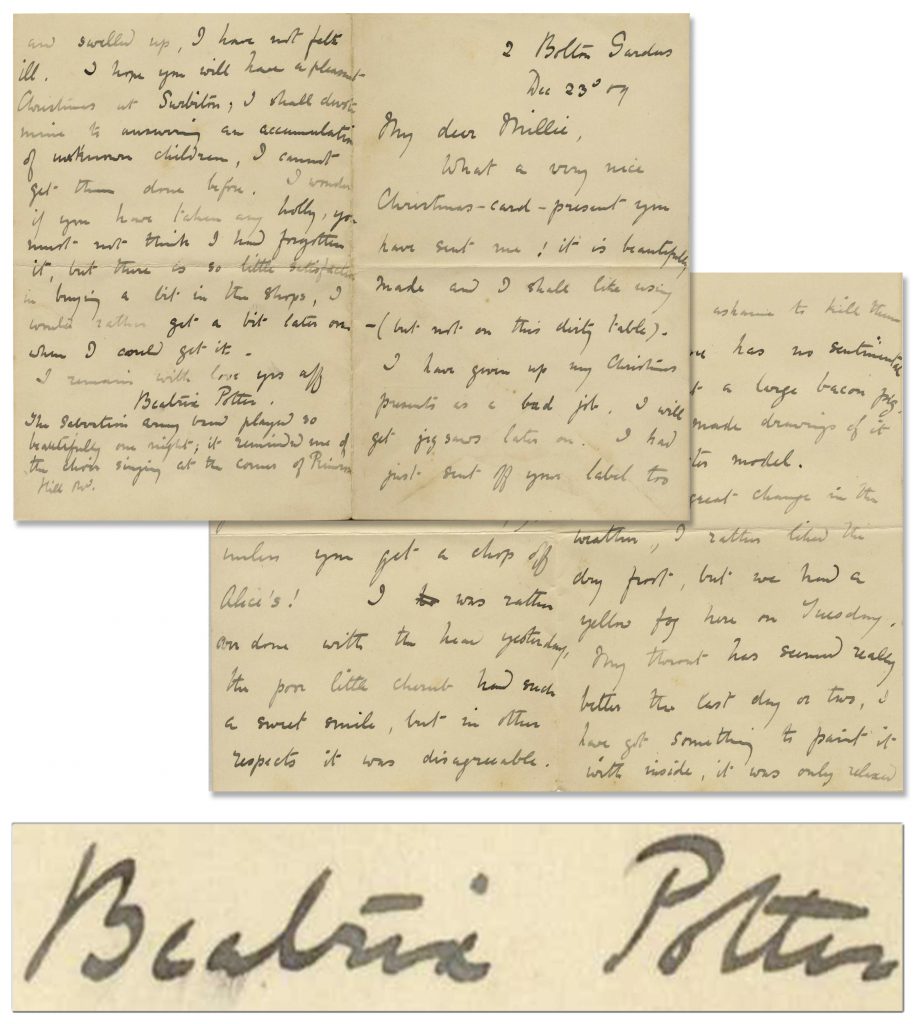 2 Bolton Gardens
Dec 23d 09
My dear Millie,
What a very nice
Christmas-card-present you
have sent me! it is beautifully
made and I shall like using
-(but not on this dirty table).
I have given up my Christmas
presents as a bad job. I will
get jigsaws later on. I had
just sent off your label too
unless you get a chop off
Alice's! I was rather
over done with the head yesterday,
the poor little cherub had such
a sweet smile, but in other
respects it was disagreeable.
ashamed to kill them
has no sentimental
a large bacon pig.
made drawings of it
model.
great change in the
weather, I rather liked the
dry frost, but we had a
yellow fog here on Tuesday.
My throat has seemed really
better the last day or two, I
have got something to paint it
with inside, it was only relaxed
and swelled up, I have not felt
ill. I hope you will have a pleasant
Christmas at Surbiton; I shall devote
mine to answering an accumulation
of unknown children, I cannot
get them done before. I wonder
if you have taken any holly, you
must not think I had forgotten
it, but there is so little satisfaction
in buying a bit in the shops, I
would rather get a bit later on
when I could get it -
I remain with love yrs aff
Beatrix Potter.
The Salvation army band played so
beautifully one night; it reminded me of
the choir singing at the corner of Primrose
Hill Rd.
Beatrix Potter